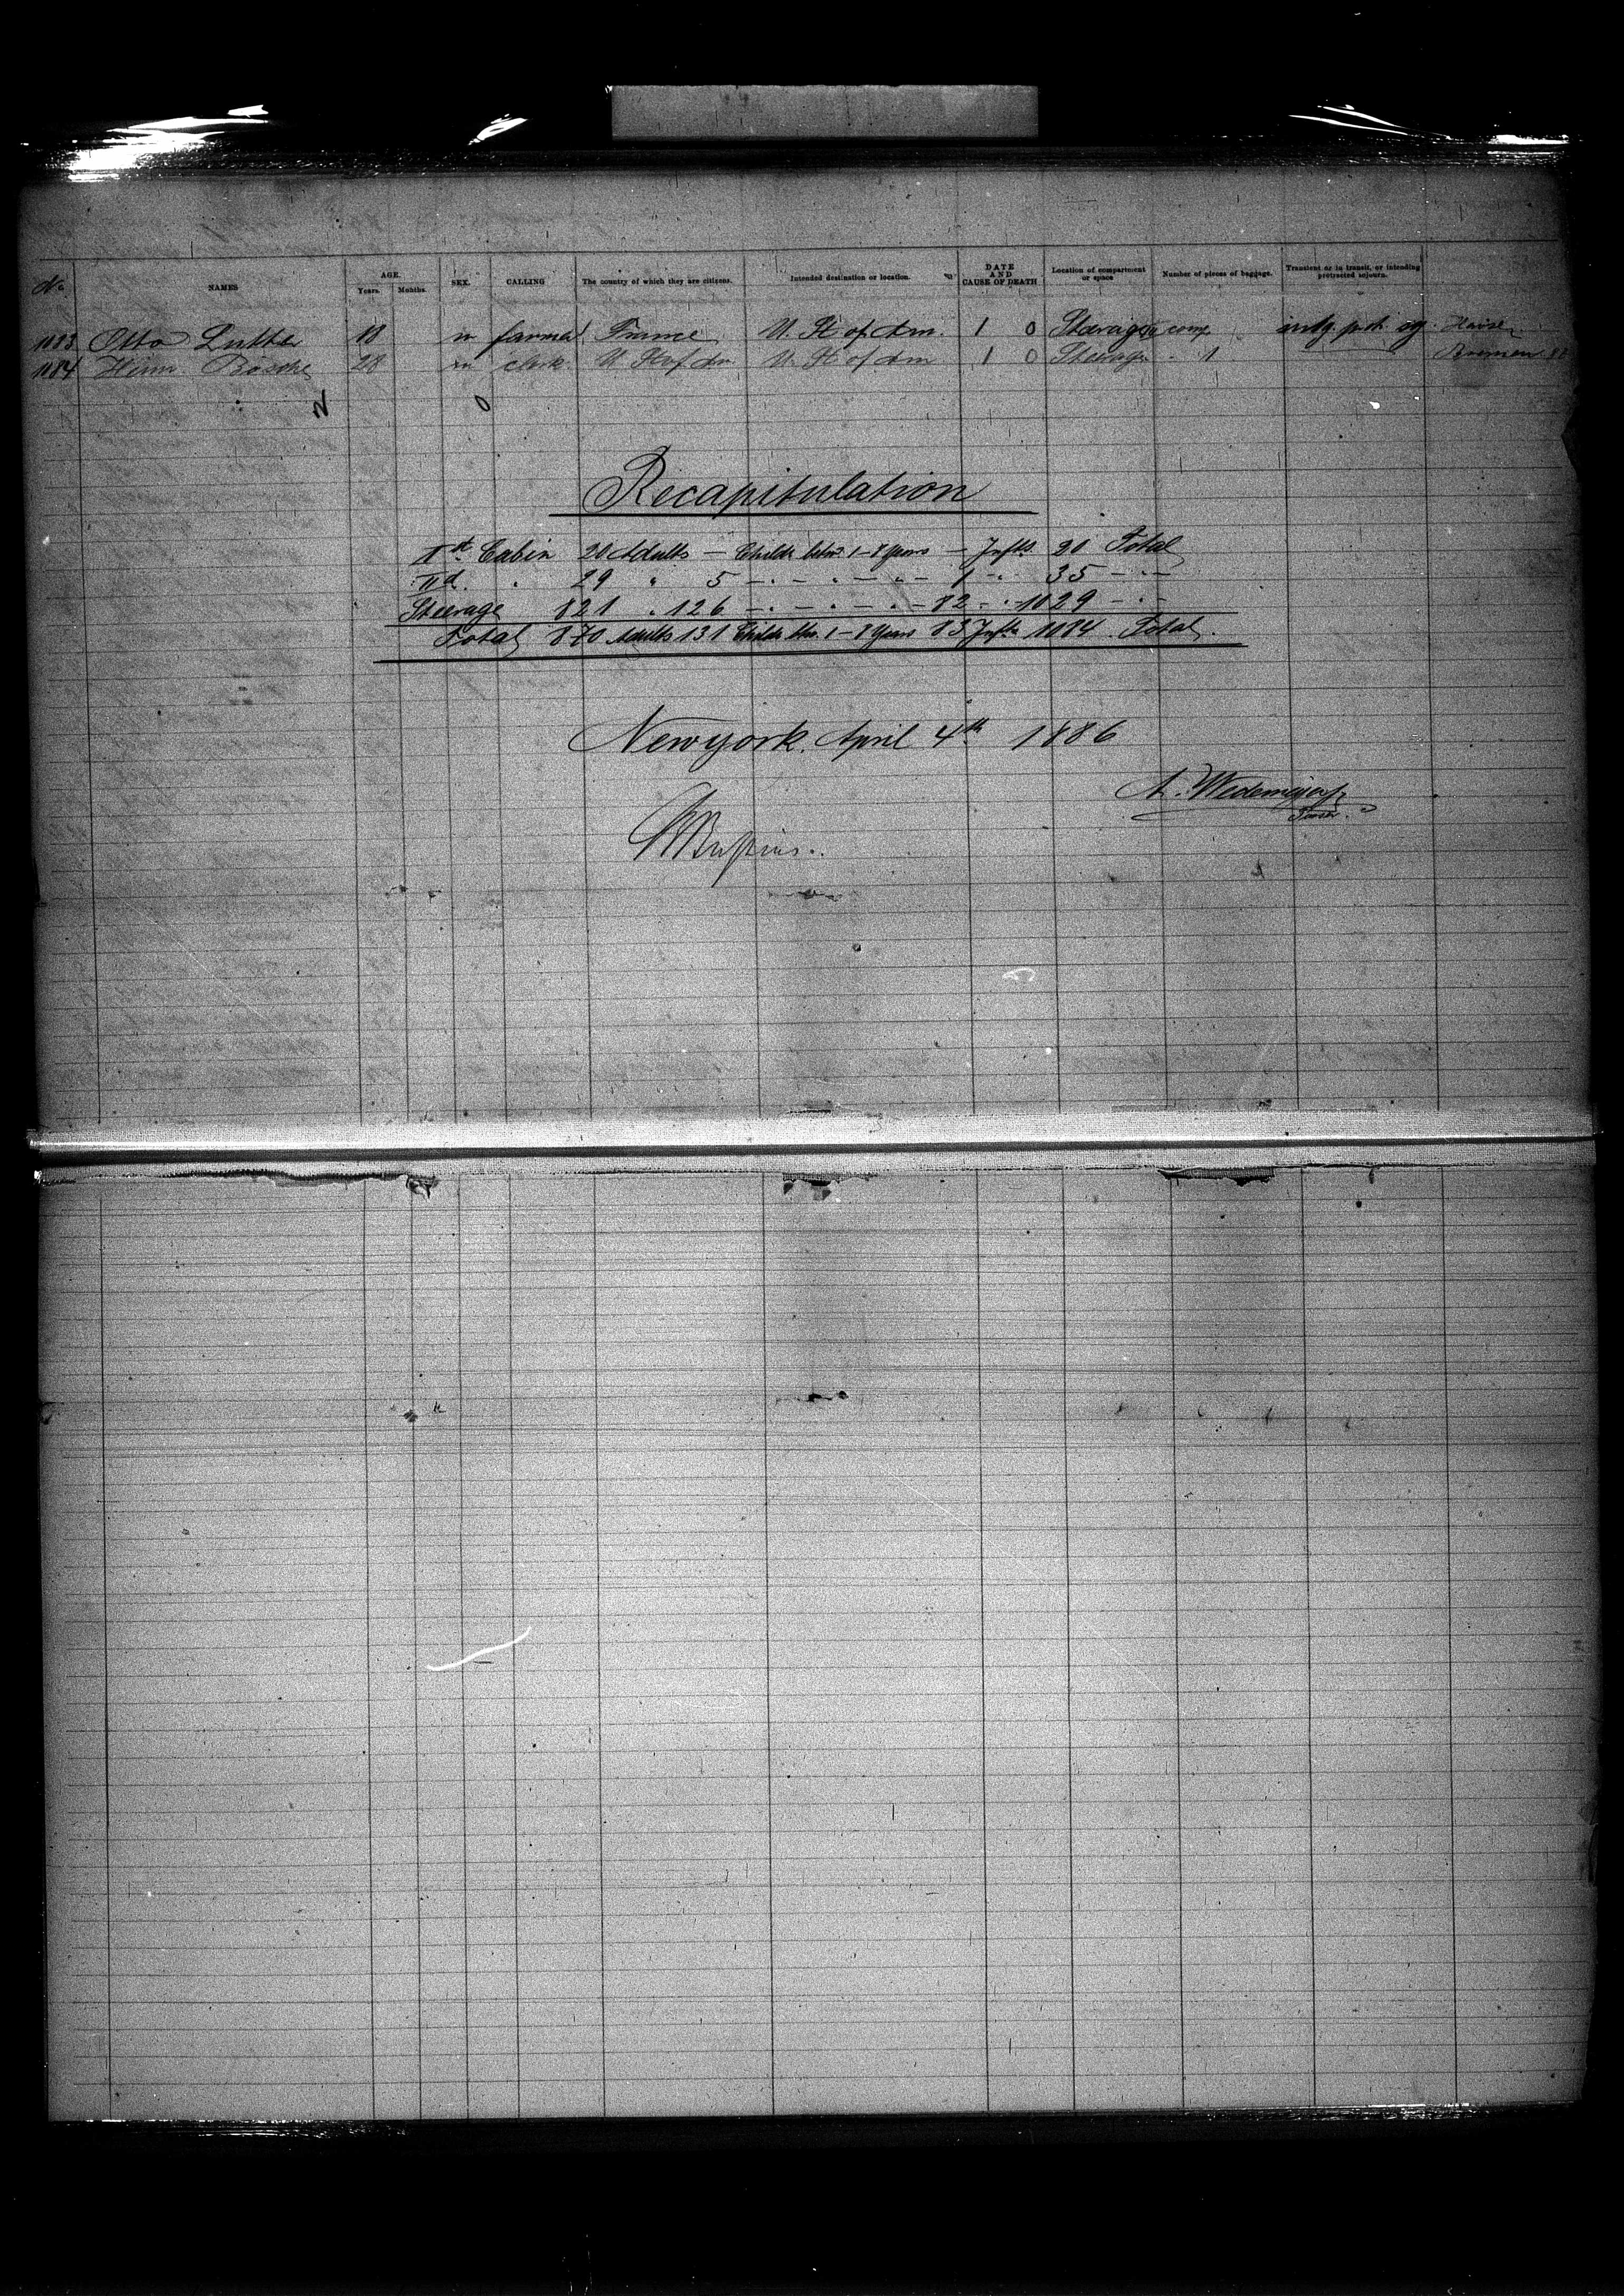 No. NAMES AGE. Years. Months. SEX. CALLING The country of which they are citizens. Intended destination or location. DATE AND CAUSE OF DEATH Location of compartment or space Number of pieces of baggage. Transient or in transit, or intending protracted sojourn.
1083 Otto Luther 18 m farmer France U. St of Am. 1 0 Steerage comp
1084 Hinr. Bösche 28 m clerk U. St of Am U. St of Am 1 0 Steerage " 1 Bremen
2 0
Recapitulation
Ist Cabin 20 Adults — Childr. betw. 1-8 Years — Infts. 20 Total
IId. " 29 " 5 -"-"-"- 1 -"- 35 -"-
Steerage 821 " 126 -"-"-"- 82 -"- 1029 -"-
Total 870 Adults 131 Childr. btw. 1-8 Years 83 Infts 1084 Total.
Newyork. April 4th 1886
A. Wedemeyer